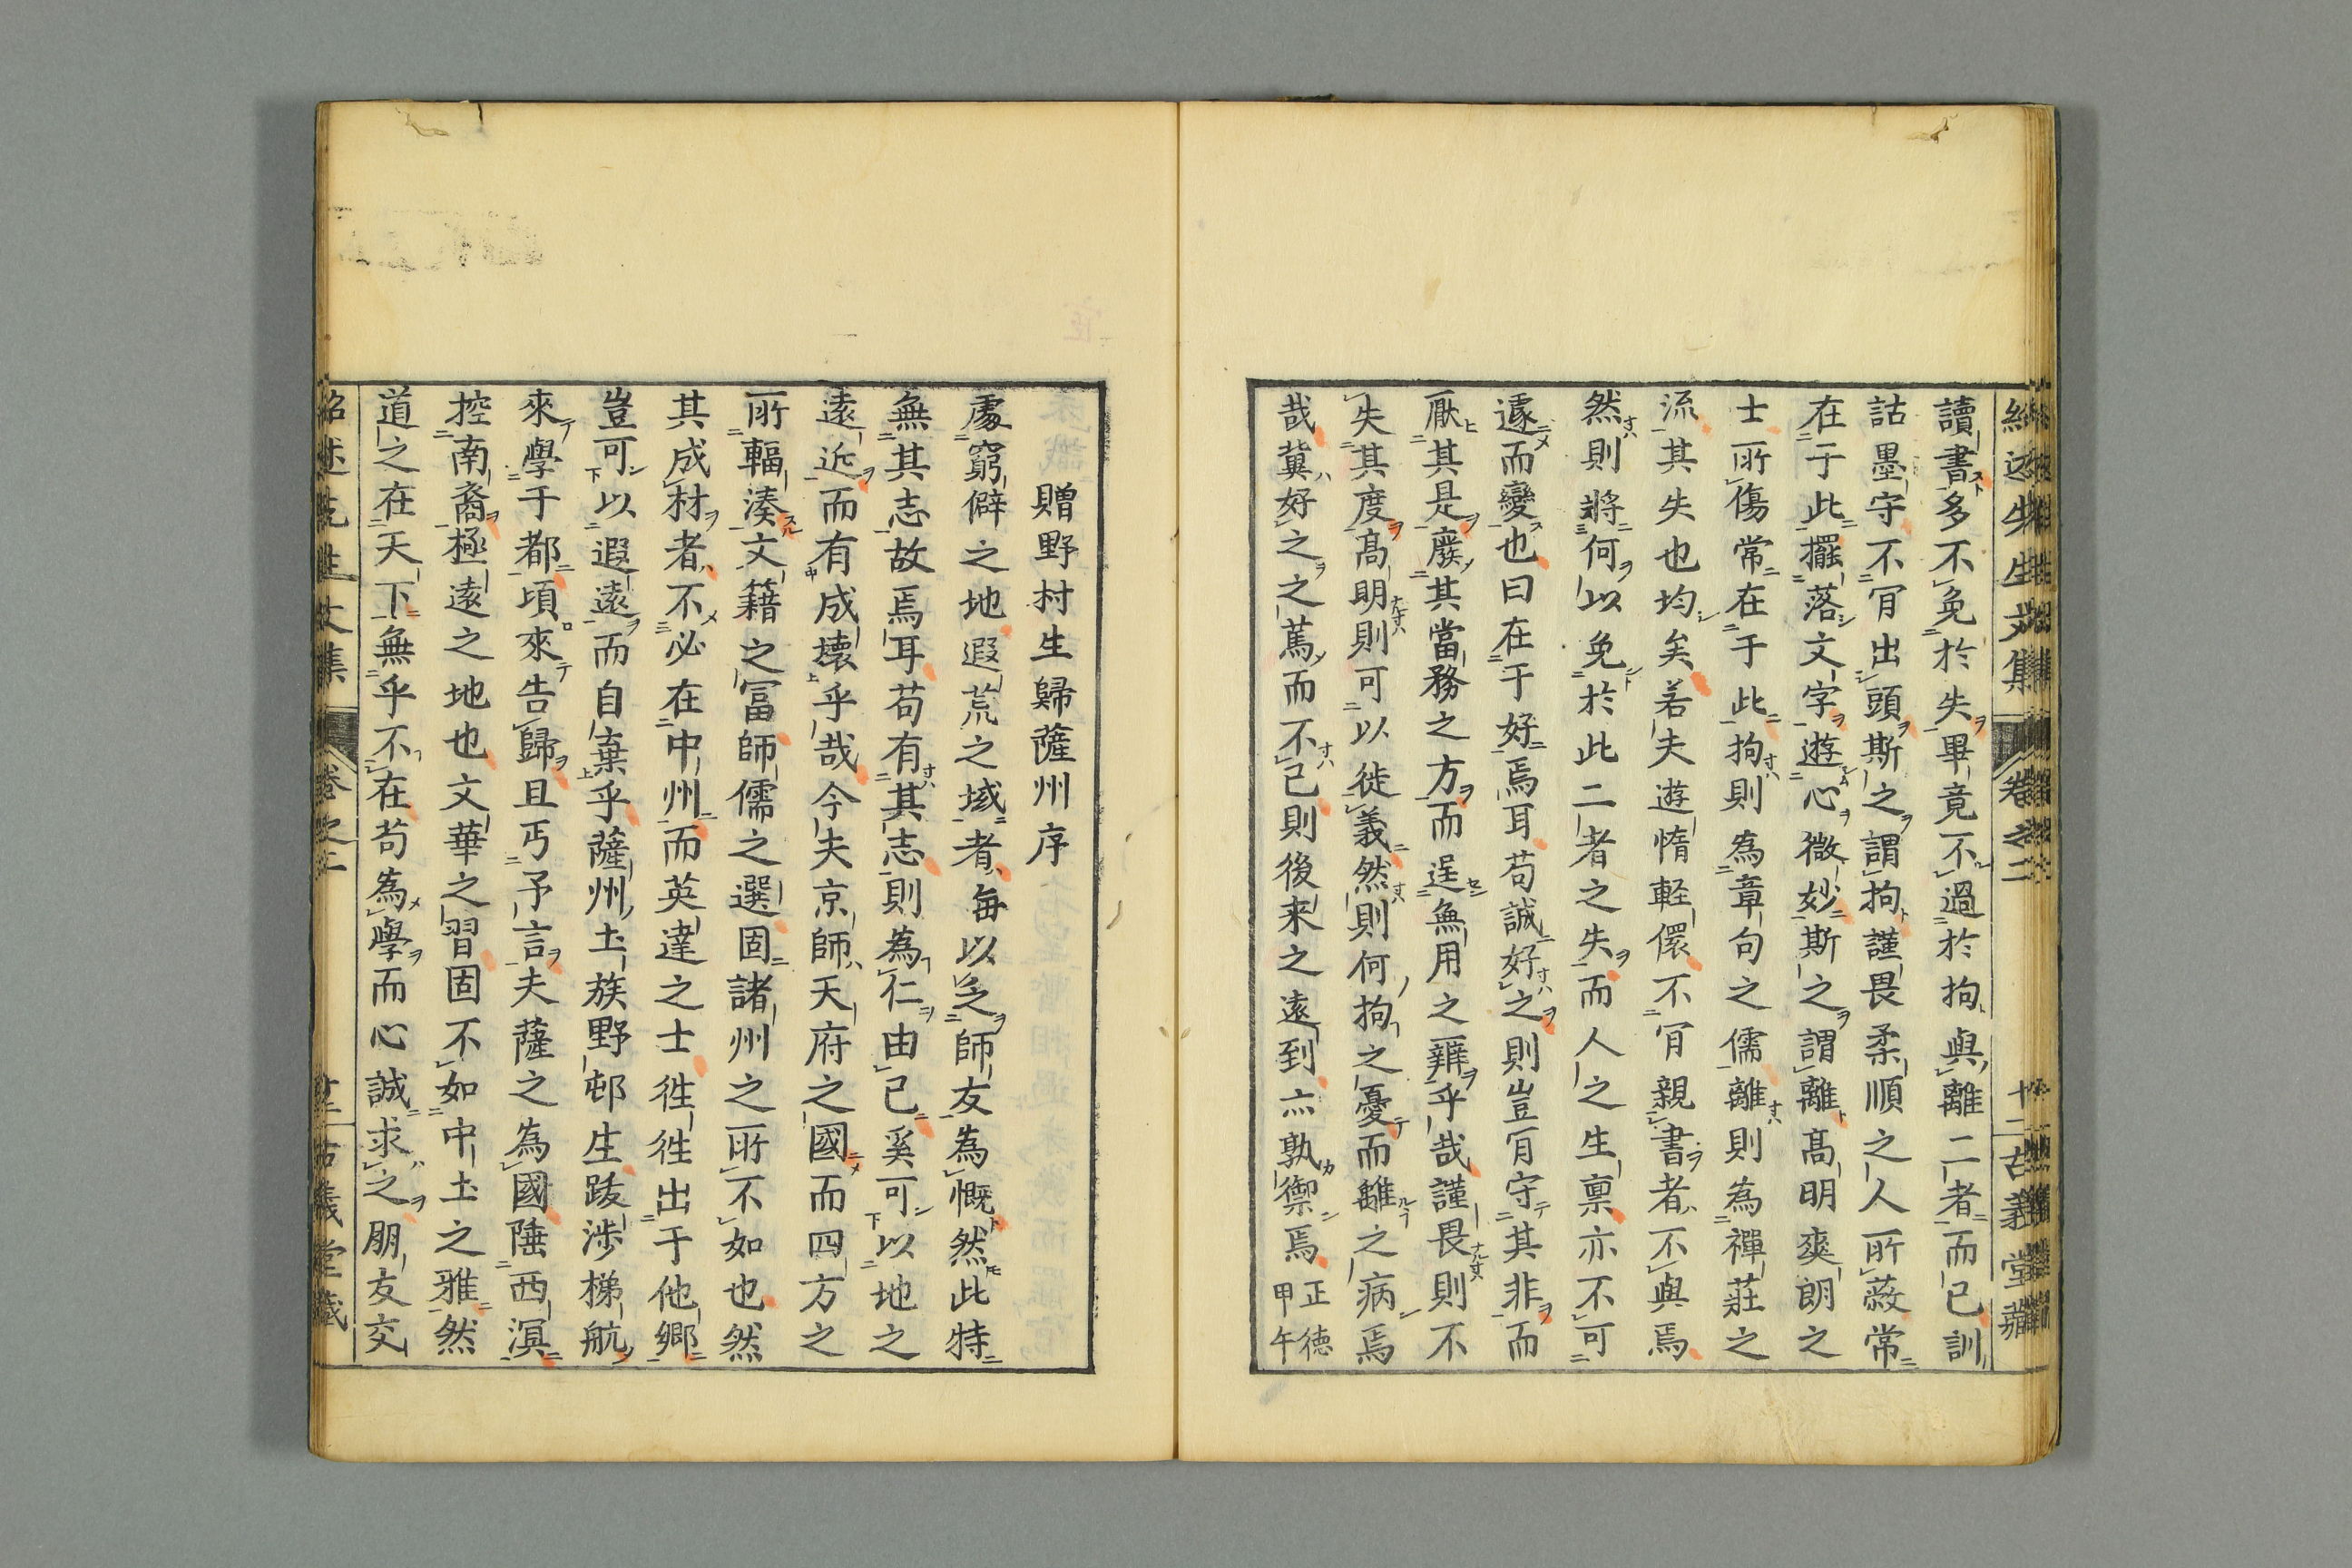 讀書多不免於失畢竟不過於拘與離二者而已訓
詁墨守不肎出頭斯之謂拘謹畏柔順之人所蔽常
在于此擺落文字遊心微妙斯之謂離髙明爽朗之
士所傷常在于此拘則為章句之儒離則為禪莊之
流其失也均矣若夫遊惰輕儇不肎親書者不與焉
然則將何以免於此二者之失而人之生禀亦不可
遽而變也曰在于好焉耳苟誠好之則豈肎守其非而
厭其是廢其當務之方而逞無用之辨乎哉謹畏則不
失其度髙明則可以徙義然則何拘之憂而離之病焉
哉冀好之之篤而不已則後来之遠到亦孰禦焉正德甲午
贈野村生歸薩州序
處窮僻之地遐荒之域者每以乏師友為慨然此特
無其志故焉耳苟有其志則為仁由已奚可以地之
遠近而有成壞乎哉今夫京師天府之國而四方之
所輻湊文籍之冨師儒之選固諸州之所不如也然
其成材者不必在中州而英達之士徃徃出于他鄉
豈可以遐遠而自棄乎薩州士族野邨生跋涉梯航
來學于都頃來告歸且丐予言夫薩之為國陲西溟
控南裔極遠之地也文華之習固不如中土之雅然
道之在天下無乎不在苟為學而心誠求之朋友交
紹述先生文集 卷之二 十二 古義堂藏